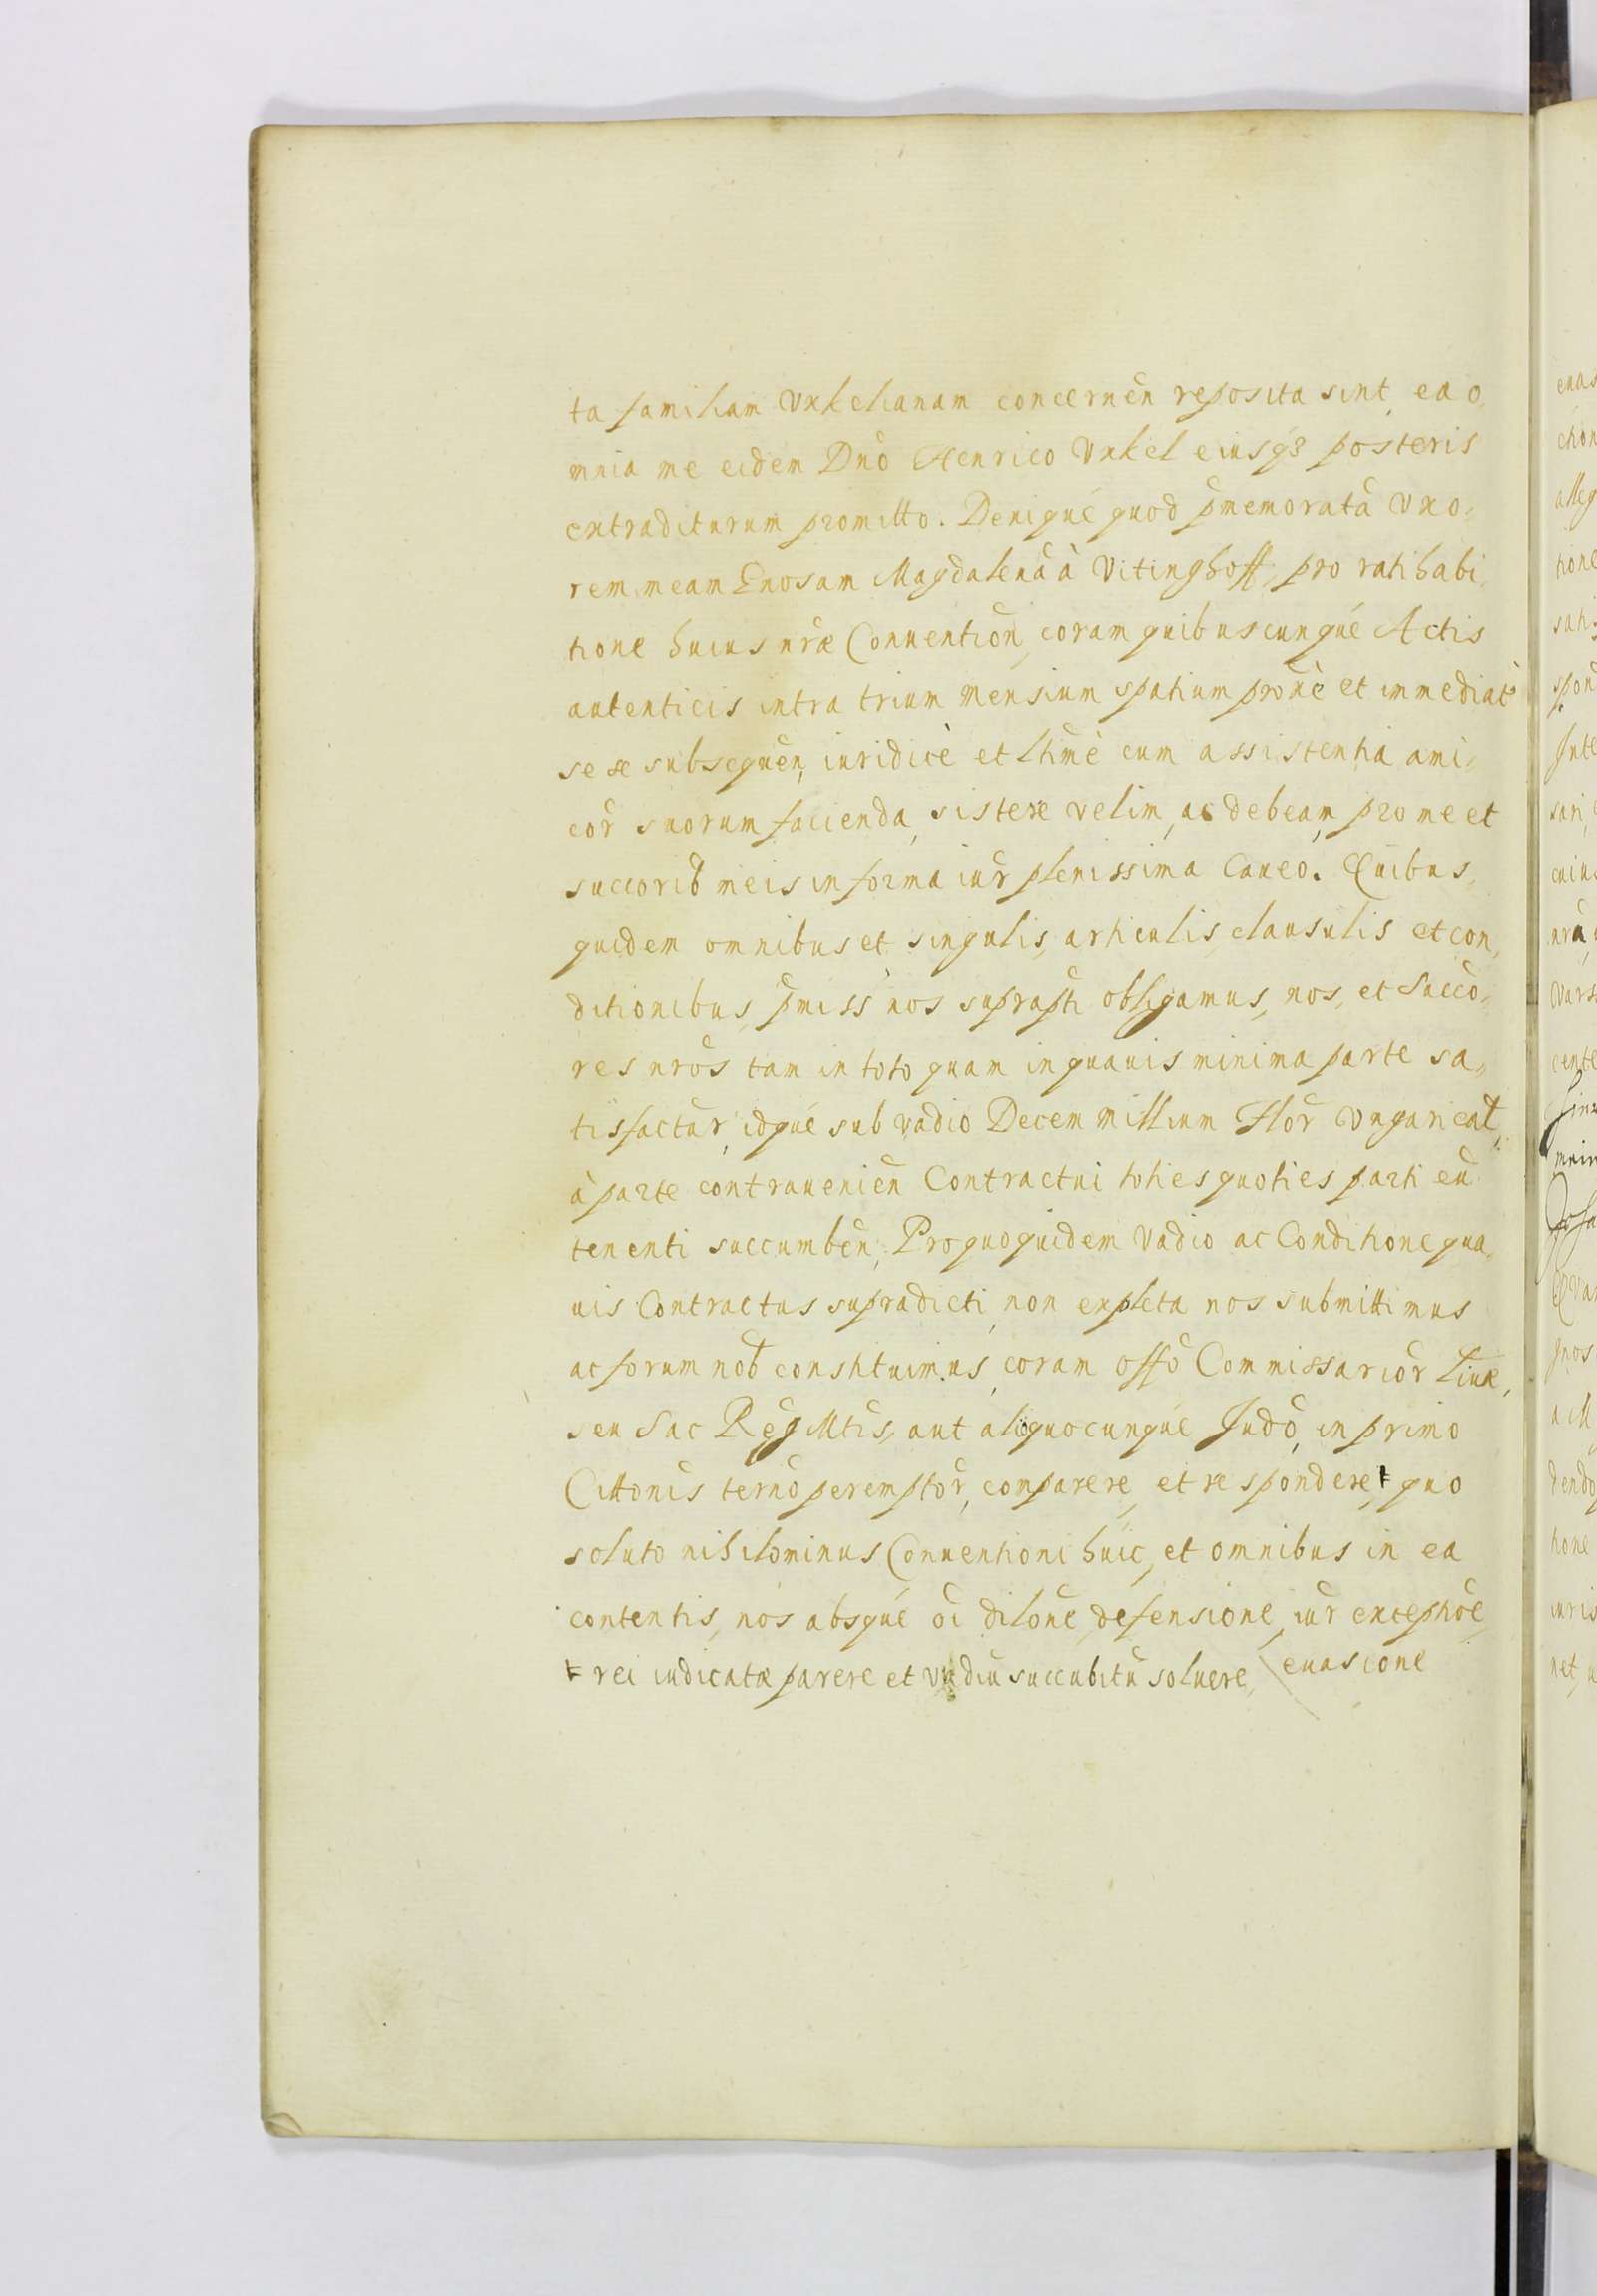 ta familiam Vnkelianam concernen̄ reposita sint, ea o,
mnia me eidem Dnō Henrico Vnkel eiusq3 posteris
extraditurum promitto. Deniqué quod p̄memoratā Vxo,
rem meam Gnosam Magdalenā à Vitinghoff, pro ratihabi,
tione huius nr̄æ Conuention̄, coram quibuscunqué Actis
autenticis intra trium mensium spatium prox̄è et immediatè
sese subsequen̄, iuridicè et lhīmè cum assistentia ami,
cor̄ suorum facienda, sistere velim, ac debeam, pro me et
succorib̄ meis in forma iur̄ plenissima Caueo. Quibus,
quidem omnibus et singulis, articulis, clausulis et con,
ditionibus, p̄miss̄ nos suprap̄ti obligamus, nos, et Succo,
res nrōs tam in toto quam in quauis minima parte sa,
tisfactur̄, idqué sub vadio Decem Millium Flor̄ Vngarical̄,
à parte contrauenien̄ Contractui toties quoties parti eū
tenenti succumben̄, Pro quo quidem Vadio ac Conditione qua,
uis Contractus supradicti, non expleta nos submittimus
ac forum nob̄ constituimus, coram offō Commissarior̄ Liuæ,
seu Sac Reḡ Mtīs, aut alio quocunqué Judō, in primo
Cittonis termō peremptor̄, comparere, et respondere, ŧ quo
soluto nihilominus Conuentioni huic, et omnibus in ea
contentis, nos absqué oī dilōne, defensione, iur̄ exceptiōe,
ŧ rei iudicatæ parere et vadiū succubitū soluere, euasione